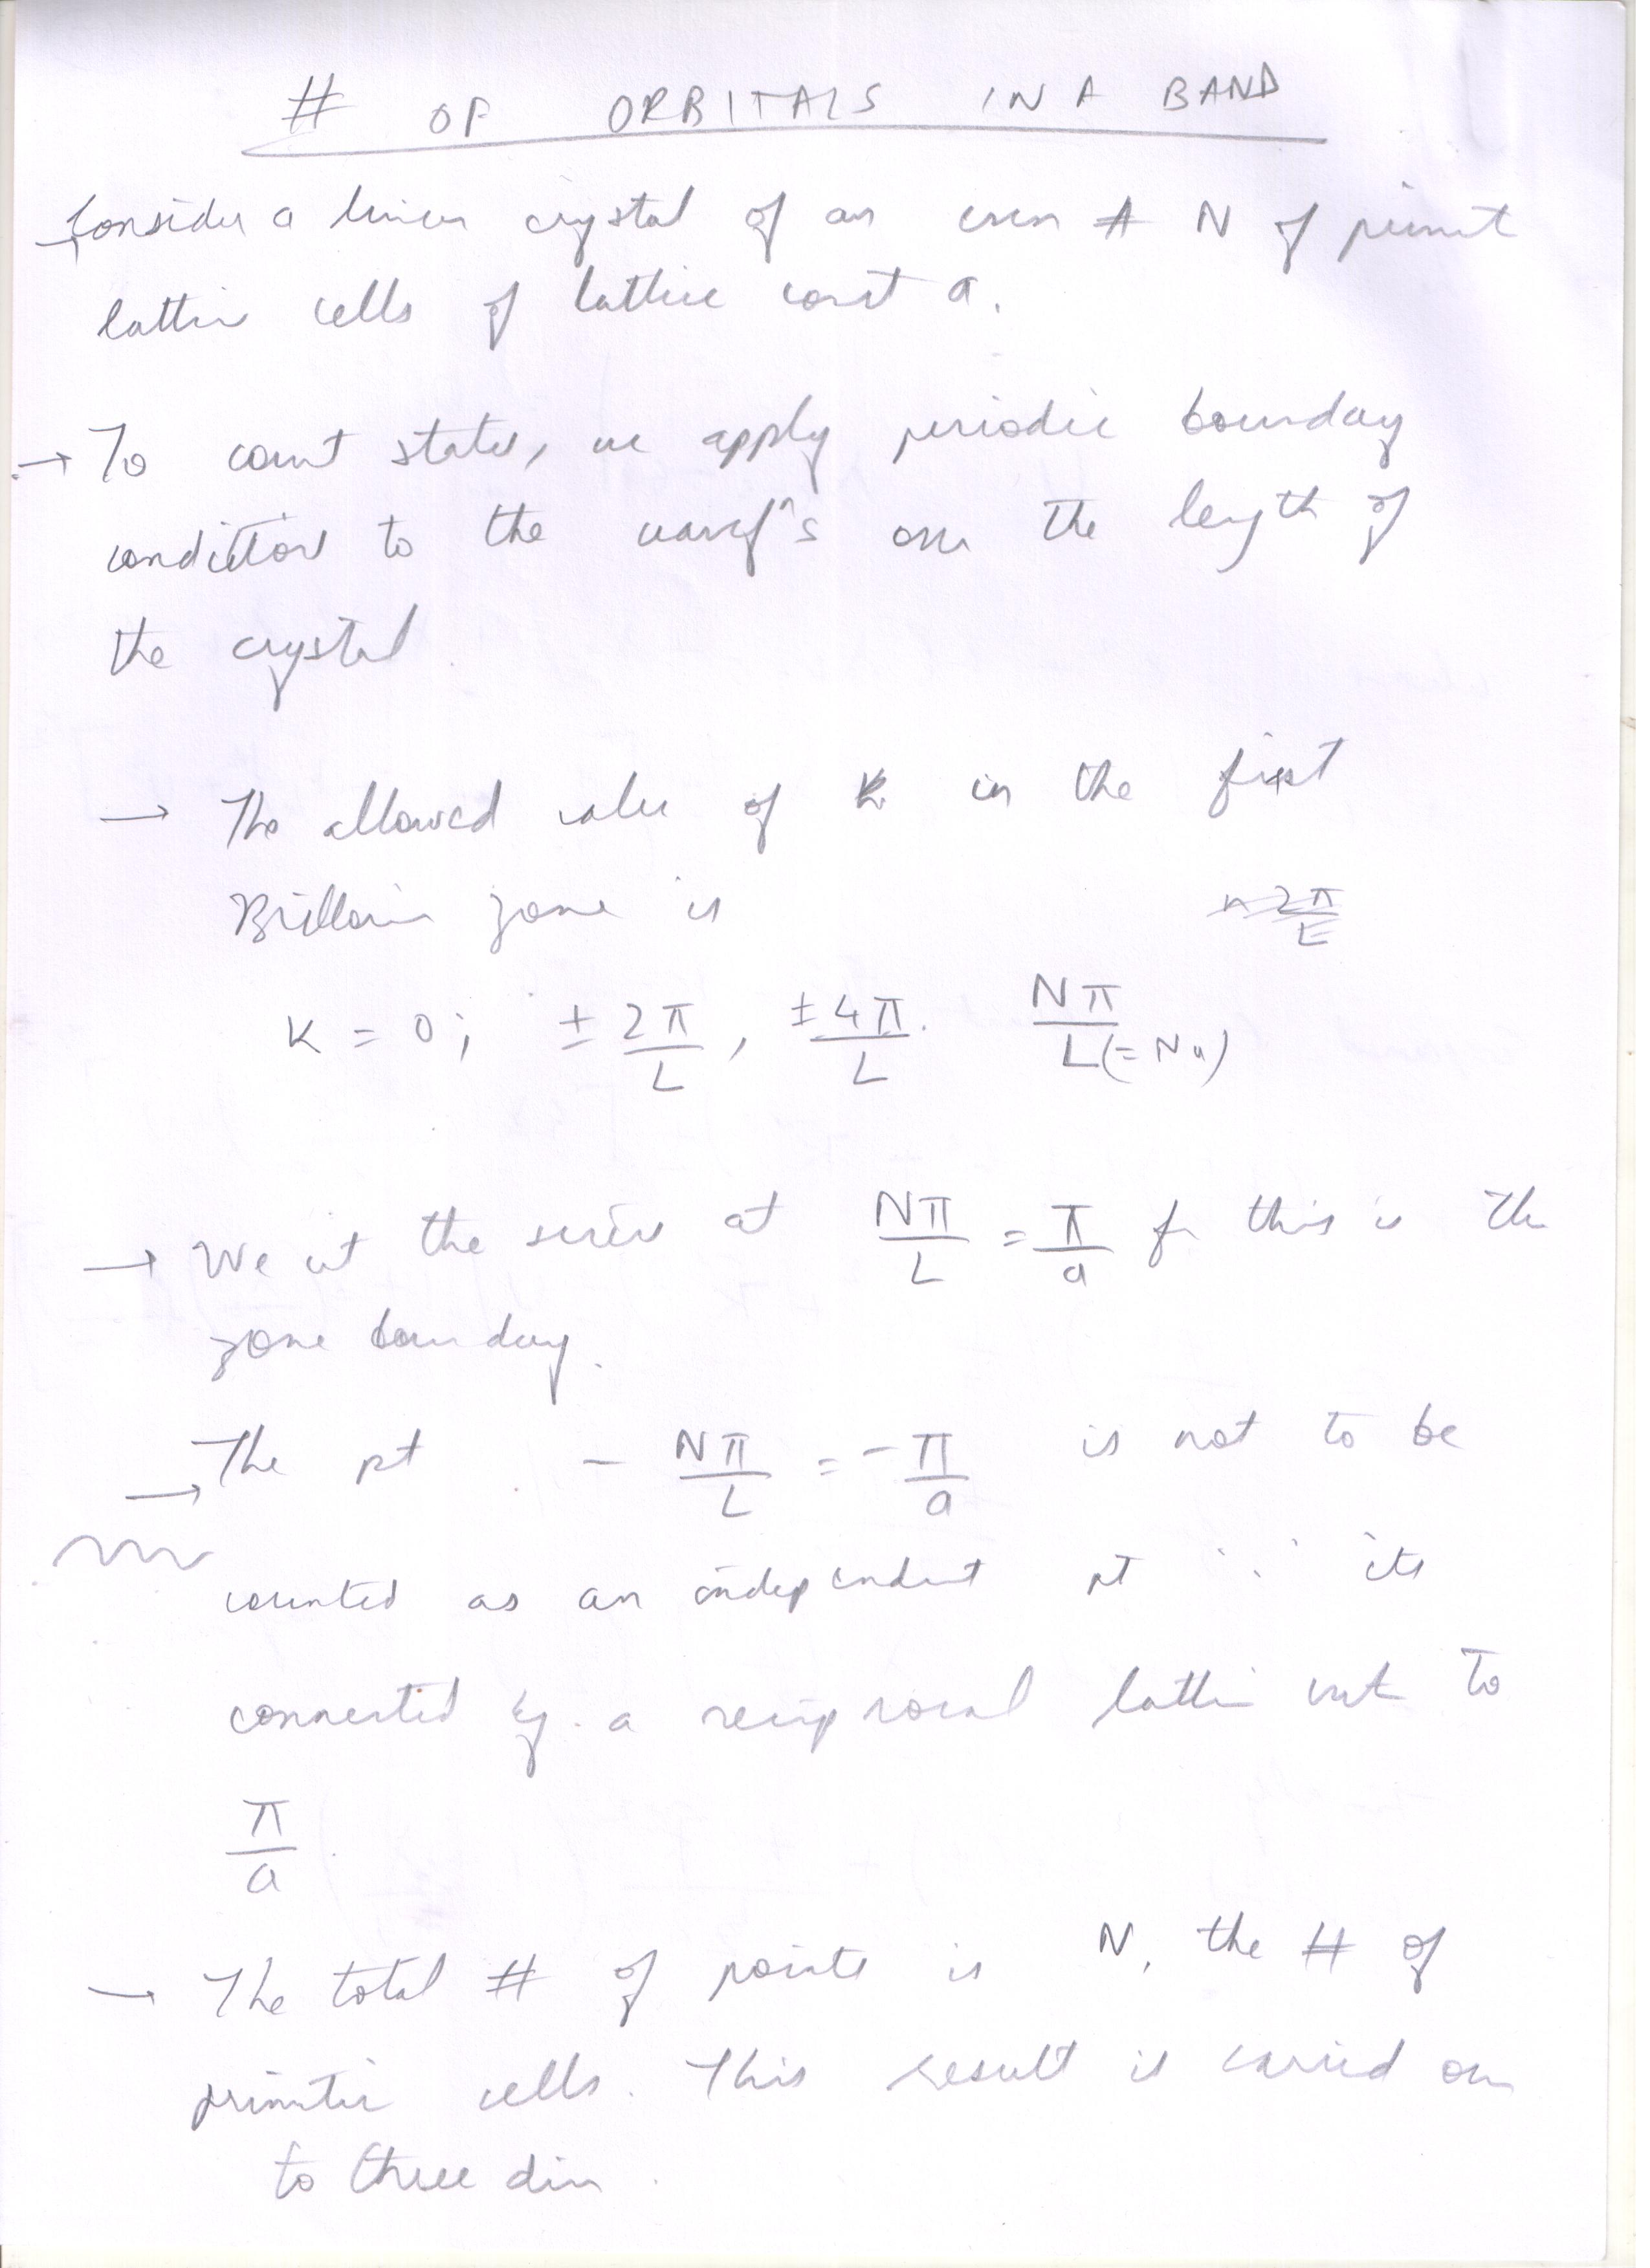 # OF ORBITALS IN A BAND
→ Consider a linear crystal of an even # N of primit
lattice cells of lattice const a.
→ To count states, we apply periodic boundary
condition to the wavefⁿs over the length of
the crystal.
→ The allowed value of k in the first
Brillouin zone is
K = 0; ± 2π/L, ± 4π/L. Nπ/L(=Na)
→ We cut the series at Nπ/L = π/a for this is the
zone boundary.
→ The pt - Nπ/L = - π/a is not to be
counted as an independent pt ∵ its
connected by a reciprocal lattice vect to
π/a
→ The total # of points is N, the # of
primitive cells. This result is carried over
to three dim.